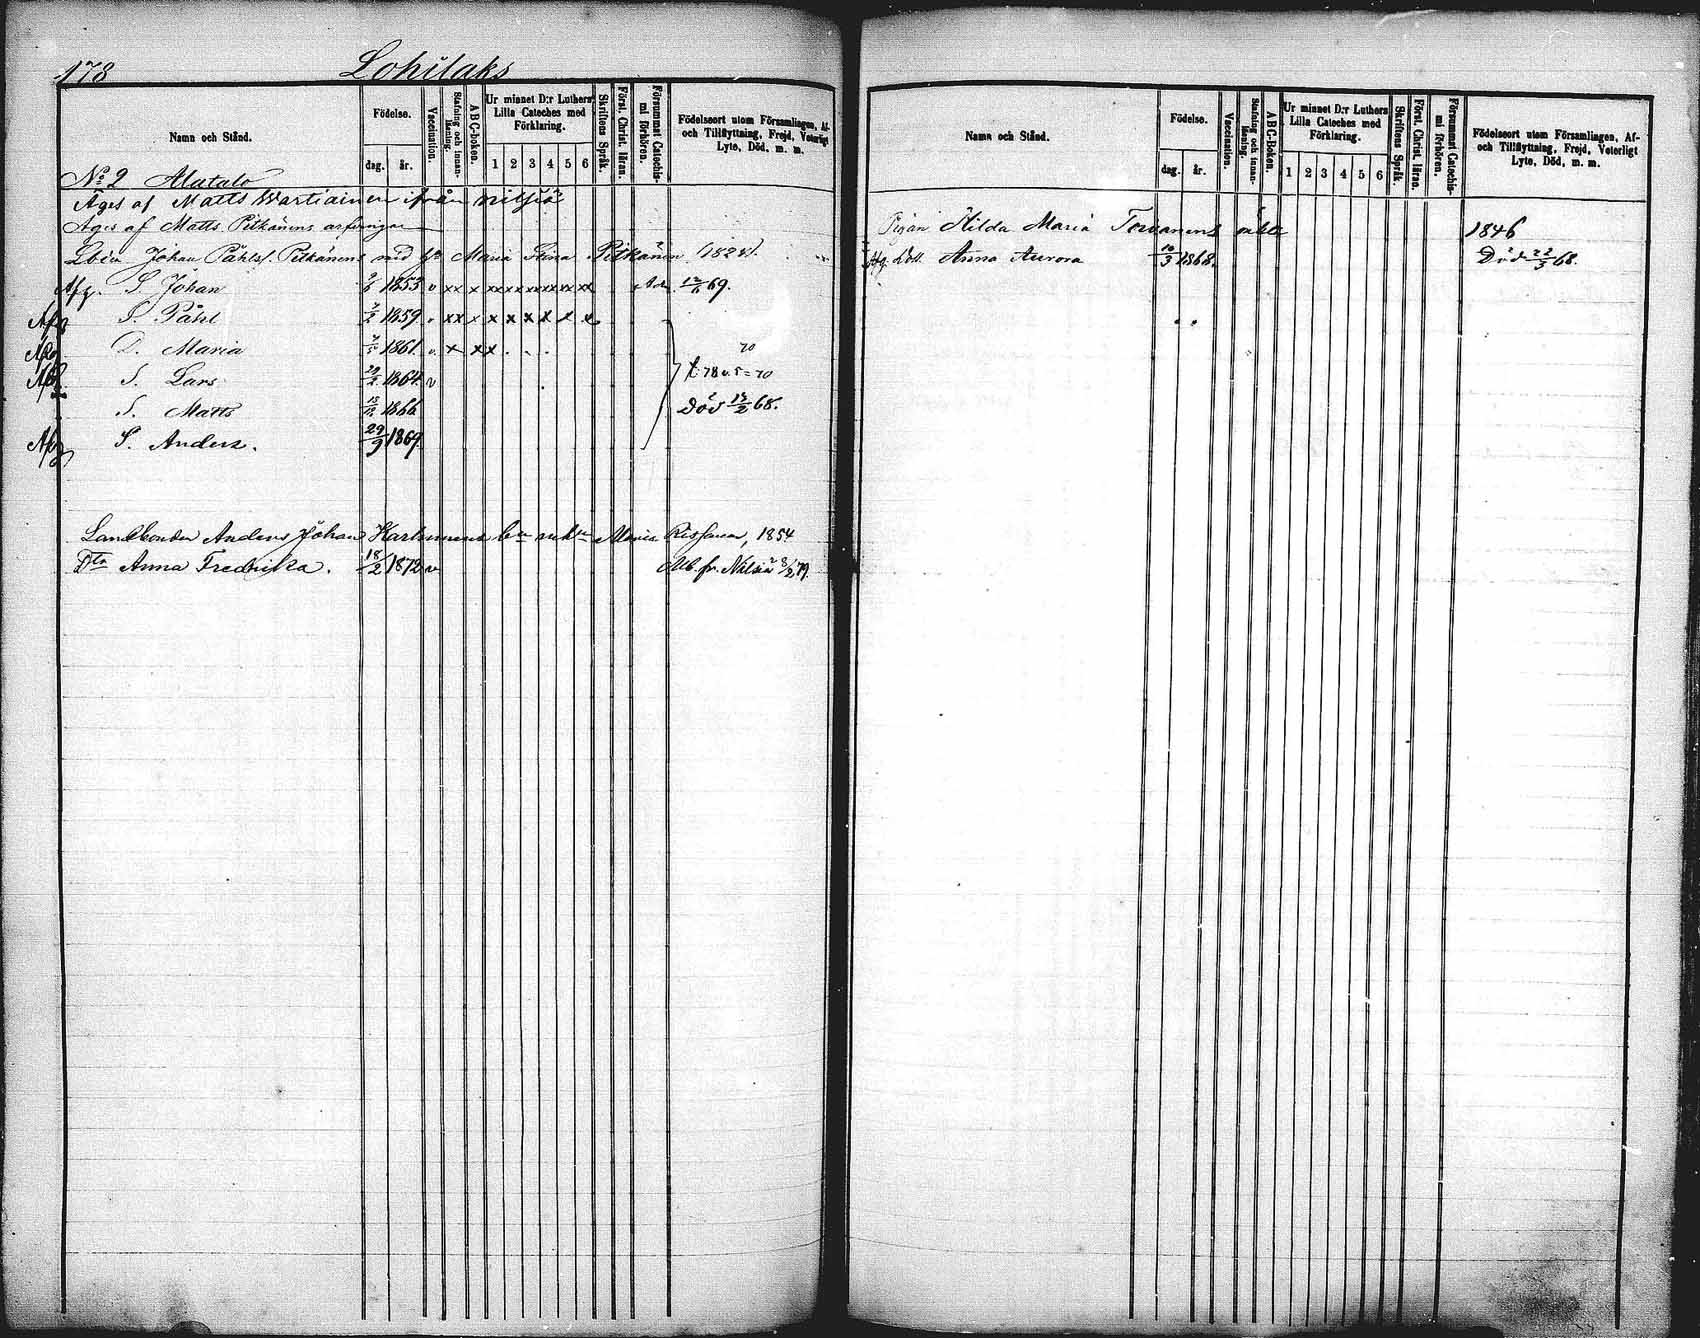 178 Lohilaks
Namn och Stånd.
Födelse.
dag. år.
Vaccination.
Stafning och innanläsning.
ABC-boken.
Ur minnet D:r Luthers Lilla Cateches med Förklaring.
1 2 3 4 5 6
Skriftens Språk.
Först. Christ. läran.
Försummat Catechismi förhören.
Födelseort utom Församlingen, Af- och Tillflyttning, Frejd, Veterligt Lyte, Död, m. m.
No 2 Matalo
Äges af Matts Wartiainen ifrån Nilsiä
Äges af Matts Pitkänens arfvingar
Johan Påhls. Pitkänens med Maria Stina Pitkänen (1824).
Afg. S. Johan 1853 v xx x xx xx xx xx xx xx 69.
Afg S. Påhl 1859 xx x x x x x x x
Afg D. Maria 1861 v. x xx x 70
Afg S. Lars 29/2 1864 v 70
S. Matts 1866 Död 68.
Afg S. Anders. 29/9 1869
Landbonden Anders Johan Karhunens Maria Rissanen, 1854
Dtr Anna Fredrika. 18/2 1872 v fr. Nilsiä 79.
Namn och Stånd.
Födelse.
dag. år.
Vaccination.
Stafning och innanläsning.
ABC-Boken.
Ur minnet D:r Luthers Lilla Cateches med Förklaring.
1 2 3 4 5 6
Skriftens Språk.
Först. Christ. läran.
Försummat Catechismi förhören.
Födelseort utom Församlingen, Af- och Tillflyttning, Frejd, Veterligt Lyte, Död, m. m.
Pigan Hilda Maria Toivanens oäkta 1846
Afg. Dott. Anna Aurora 10/3 1868. Död 22/5 68.